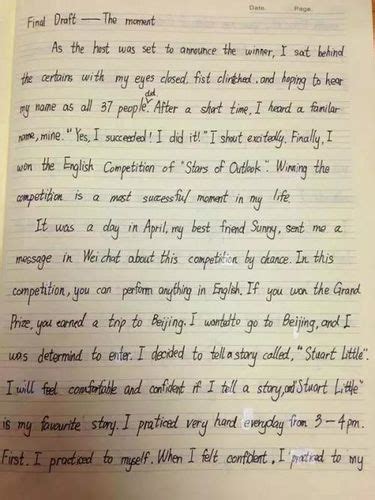 Date.    Page.
Final Draft — The moment
As the host was set to announce the winner, I sat behind
the certains with my eyes closed, fist clinched, and hoping to hear
my name as all 37 people did. After a short time, I heard a familar
name, mine. "Yes, I succeeded! I did it!" I shout excitedly. Finally, I
won the English Competition of "Stars of Outlook". Winning the
competition is a most successful moment in my life.
It was a day in April, my best friend Sunny, sent me a
message in Wei chat about this competition by chance. In this
competition, you can perform anything in English. If you won the Grand
Prize, you earned a trip to Beijing. I wanted to go to Beijing, and I
was determind to enter. I decided to tell a story called, "Stuart Little".
I will feel comfortable and confident if I tell a story, and "Stuart Little"
is my favourite story. I praticed very hard everyday from 3-4pm.
First. I practiced to myself. When I felt confident, I practiced to my